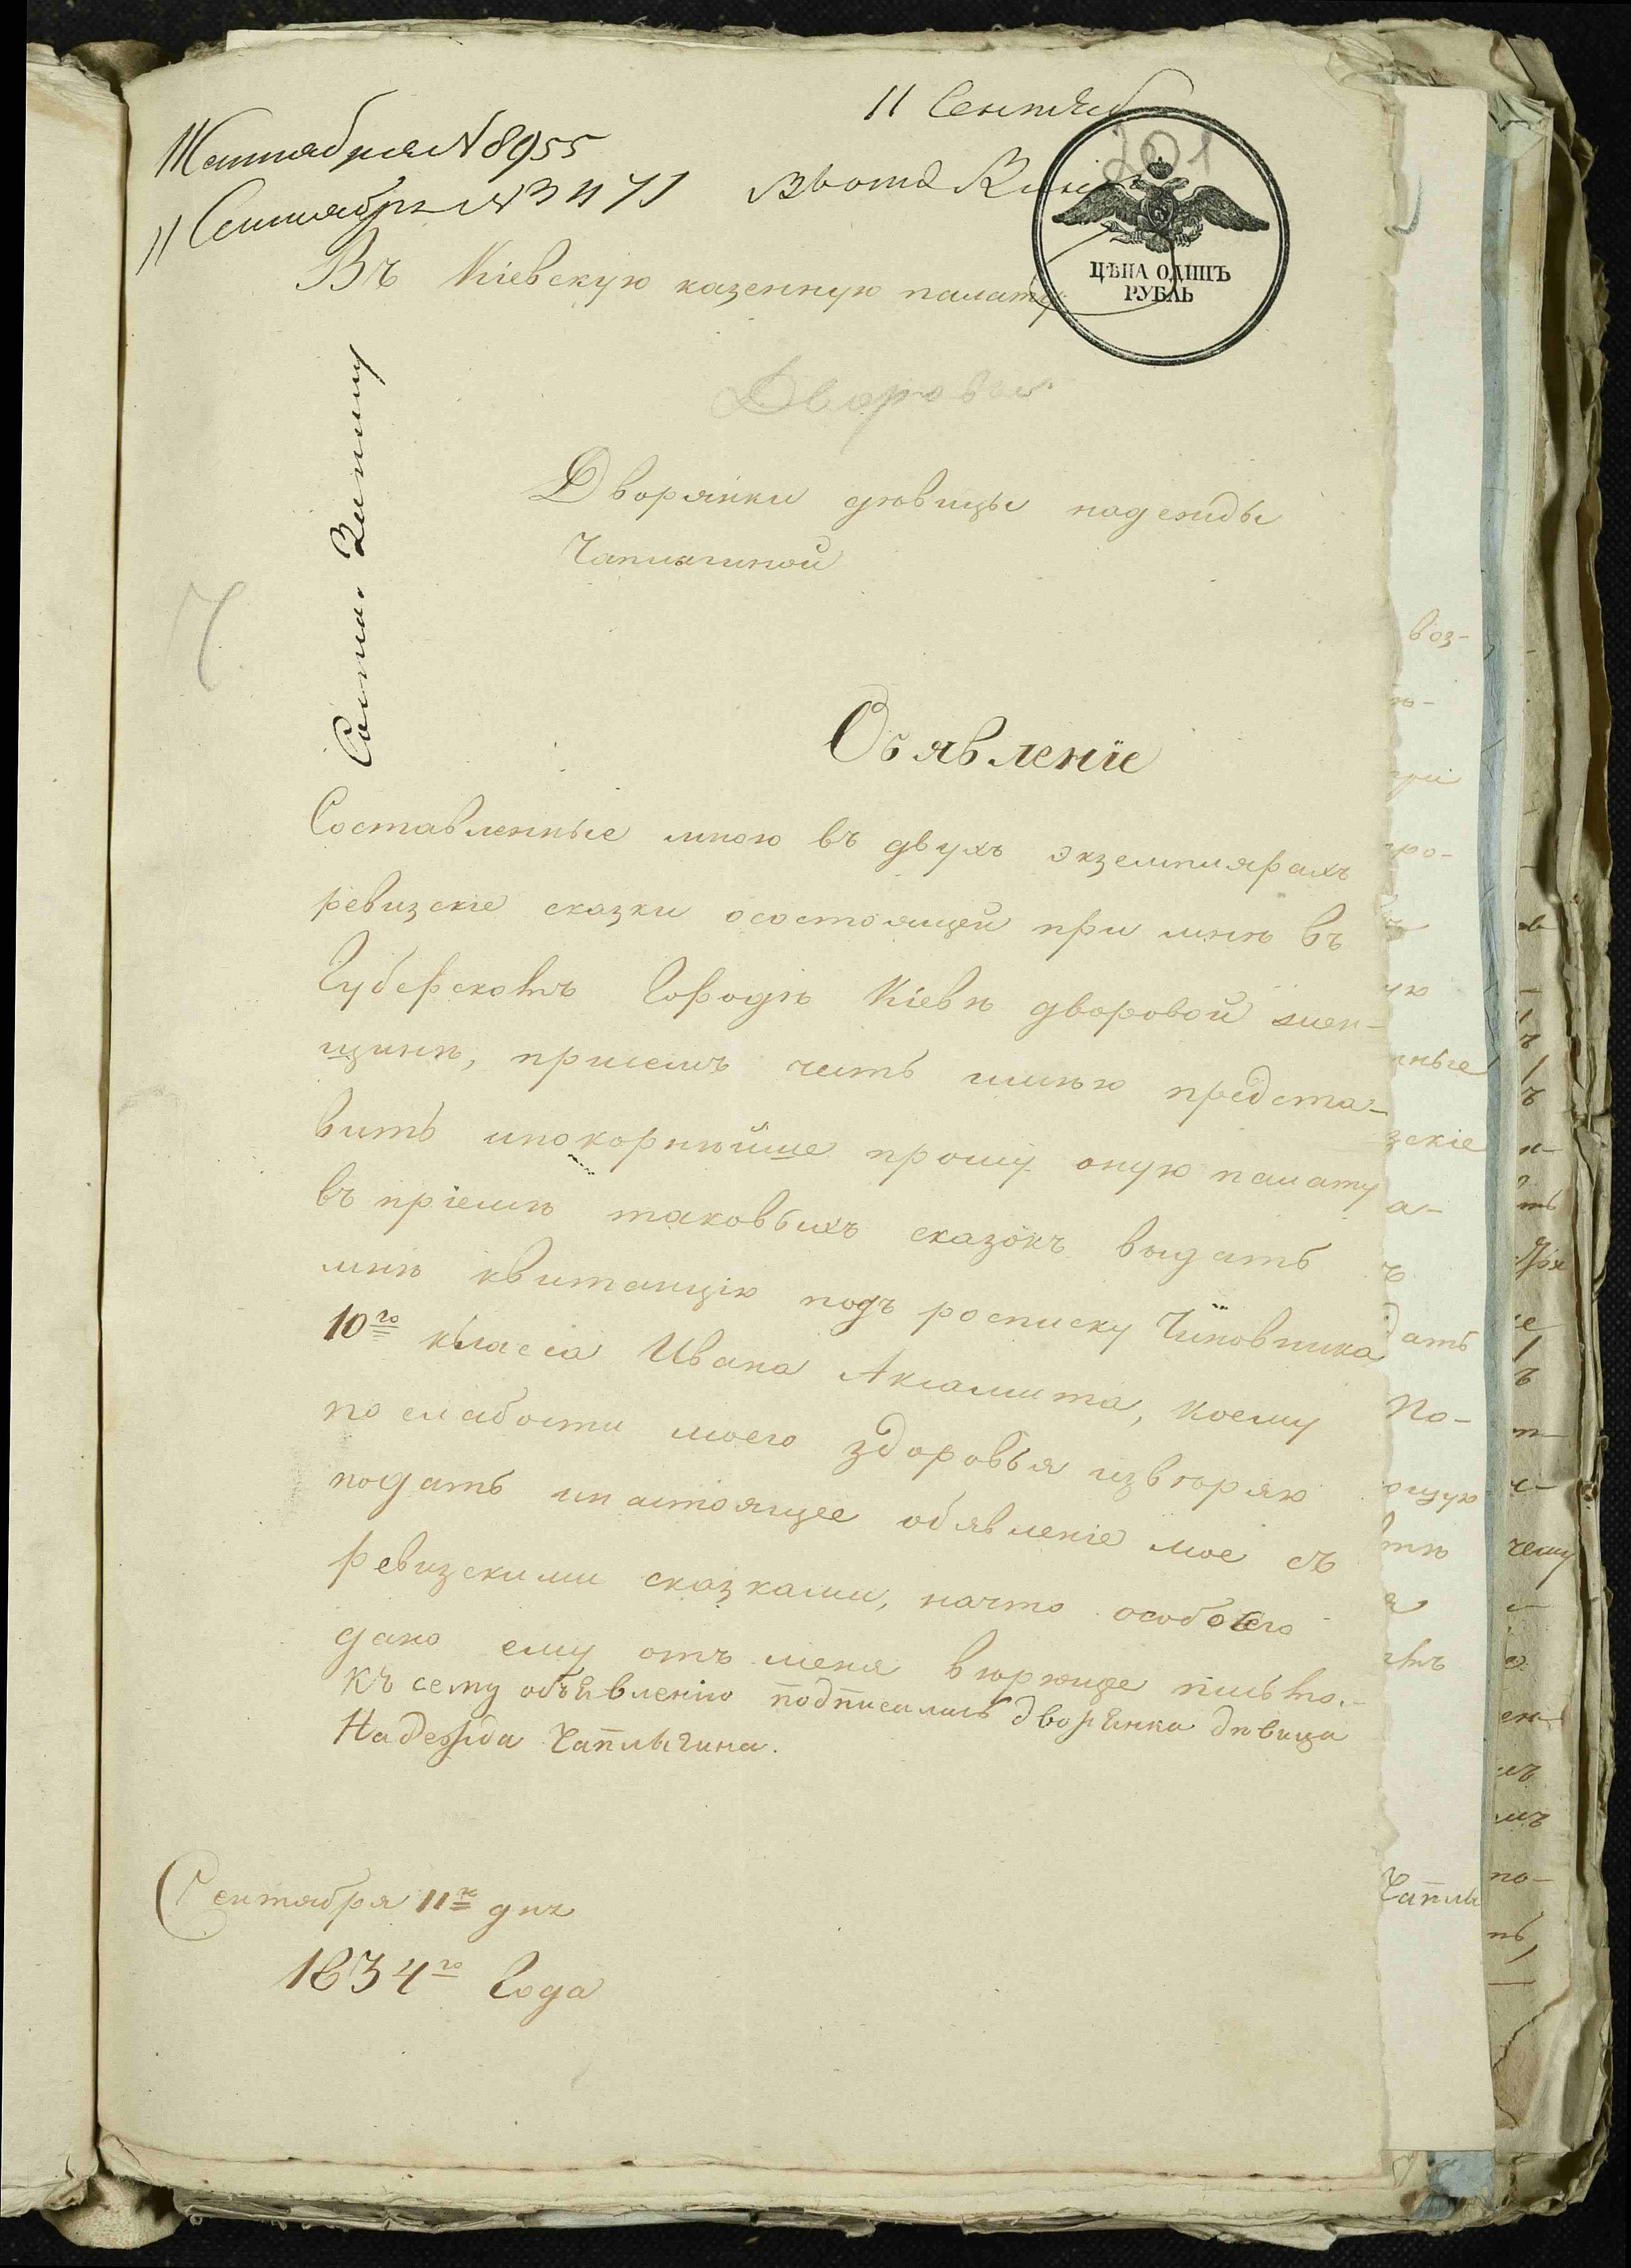 11 Сентяб
201
11 Сентября № 8955
11 Сентября № 3471
ЦѢНА ОДИНЪ
РУБЛЬ
Въ Кіевскую казенную палату
Дворовые
Дворянки дѣвицы надежды
Чаплыгиной
Обявленіе
Составленные мною въ двухъ экземплярахъ
ревизскіе сказки осостоящей при мнѣ въ
Губерскомъ Городѣ Кіевѣ дворовой жен-
щинѣ, присемъ честь имѣю предста-
вить ипокорнѣйше прошу оную палату
въ пріемѣ таковыхъ сказокъ выдать
мнѣ квитанцію подъ росписку Чиновника
10го класса Ивана Аксамита, коему
по слабости моего здоровья извѣряю
подать инастоящее обявленіе мое съ
ревизскими сказками, начто особое
дано ему отъ меня вѣрющее письмо.-
Къ сему объявлению подписалась дворянка девица
Надежда Чаплыгина.
Сентября 11го дня
1834го Года